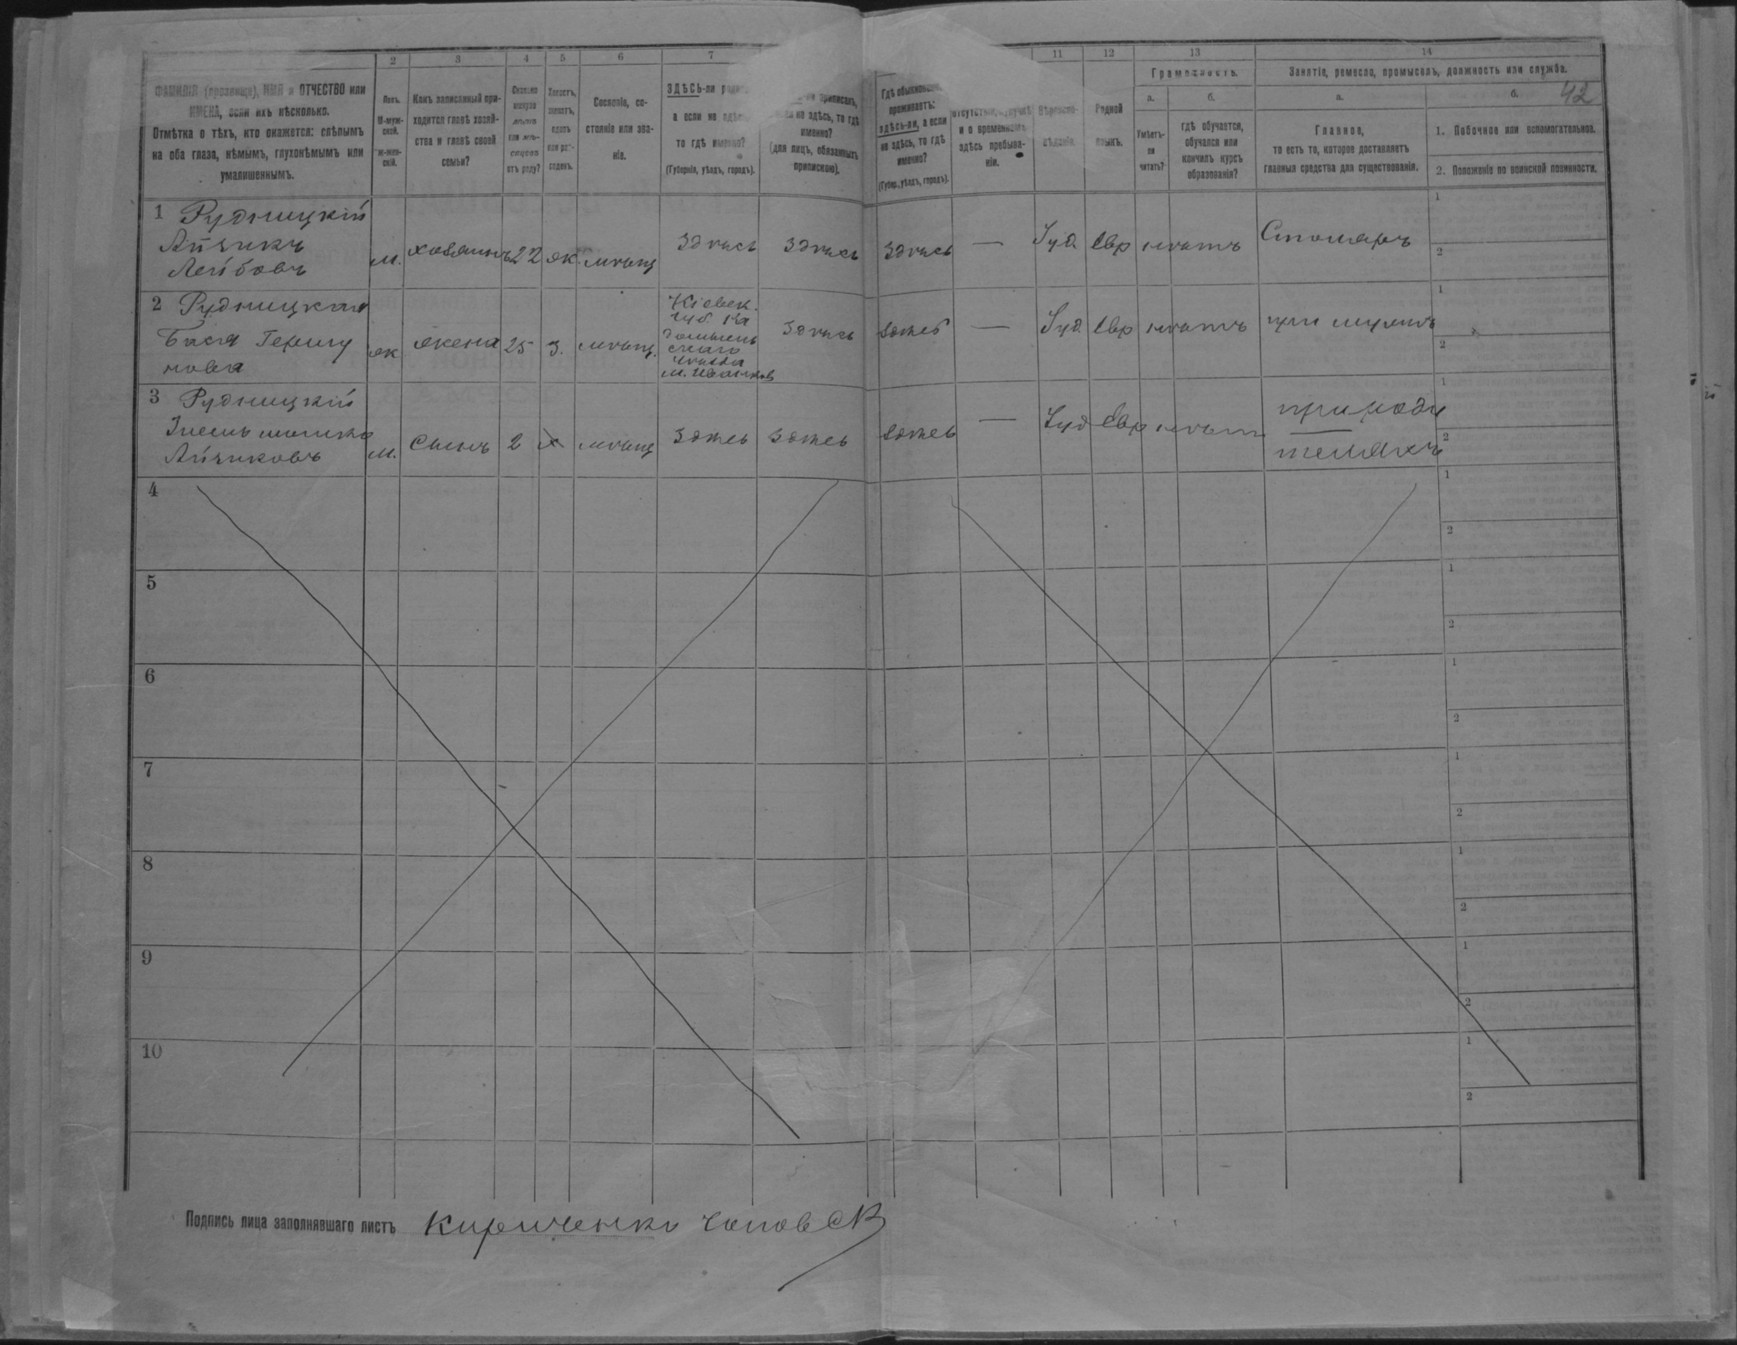 42
2 3 4 5 6 7 11 12 13 14
ФАМИЛІЯ (прозвище), ИМЯ и ОТЧЕСТВО или
ИМЕНА, если ихъ нѣсколько.
Отмѣтка о тѣхъ, кто окажется: слѣпымъ
на оба глаза, нѣмымъ, глухонѣмымъ или
умалишеннымъ.
Полъ.
М-муж-
ской.
Ж-жен-
скій.
Какъ записанный при-
ходится главѣ хозяй-
ства и главѣ своей
семьи?
Сколько
минуло
лѣтъ
или мѣ-
сяцевъ
отъ роду?
Холостъ,
женатъ,
вдовъ
или раз-
веденъ.
Сословіе, со-
стояніе или зва-
ніе.
ЗДѢСЬ-ли
а если не здѣсь,
то гдѣ именно?
(Губернія, уѣздъ, городъ).
приписанъ,
не здѣсь, то гдѣ
именно?
(для лицъ, обязанныхъ
припискою).
Гдѣ обыкновенно
проживаетъ:
здѣсь-ли, а если
не здѣсь, то гдѣ
именно?
(Губер., уѣздъ, городъ).
и о временномъ
здѣсь пребыва-
ніи.
Вѣроиспо-
вѣданіе.
Родной
языкъ.
Грамотность.
а. б.
Умѣетъ-
ли
читать?
гдѣ обучается,
обучался или
кончилъ курсъ
образованія?
Занятіе, ремесло, промыселъ, должность или служба.
а. б.
Главное,
то есть то, которое доставляетъ
главныя средства для существованія.
1. Побочное или вспомогательное.
2. Положеніе по воинской повинности.
1 Рудницкій
Айзикъ
Лейбовъ
м. хозяинъ 22 ж. мѣщ здѣсь здѣсь здѣсь — Іуд Евр нѣтъ Столяръ
1
2
2 Рудницкая
Бася Гершу
нова
ж жена 25 з. мѣщ.
Кіевск.
губ. Ра
домысль
скаго
уѣзда
м. Иванков
здѣсь здѣсь — Іуд Евр нѣтъ при мужѣ
1
2
3 Рудницкій
Айзиковъ
м. сынъ 2 х мѣщ здѣсь здѣсь здѣсь — Іуд Евр нѣтъ
при роди
теляхъ
1
2
4
1
2
5
1
2
6
1
2
7
1
2
8
1
2
9
1
2
10
1
2
Подпись лица заполнявшаго листъ Кириченко